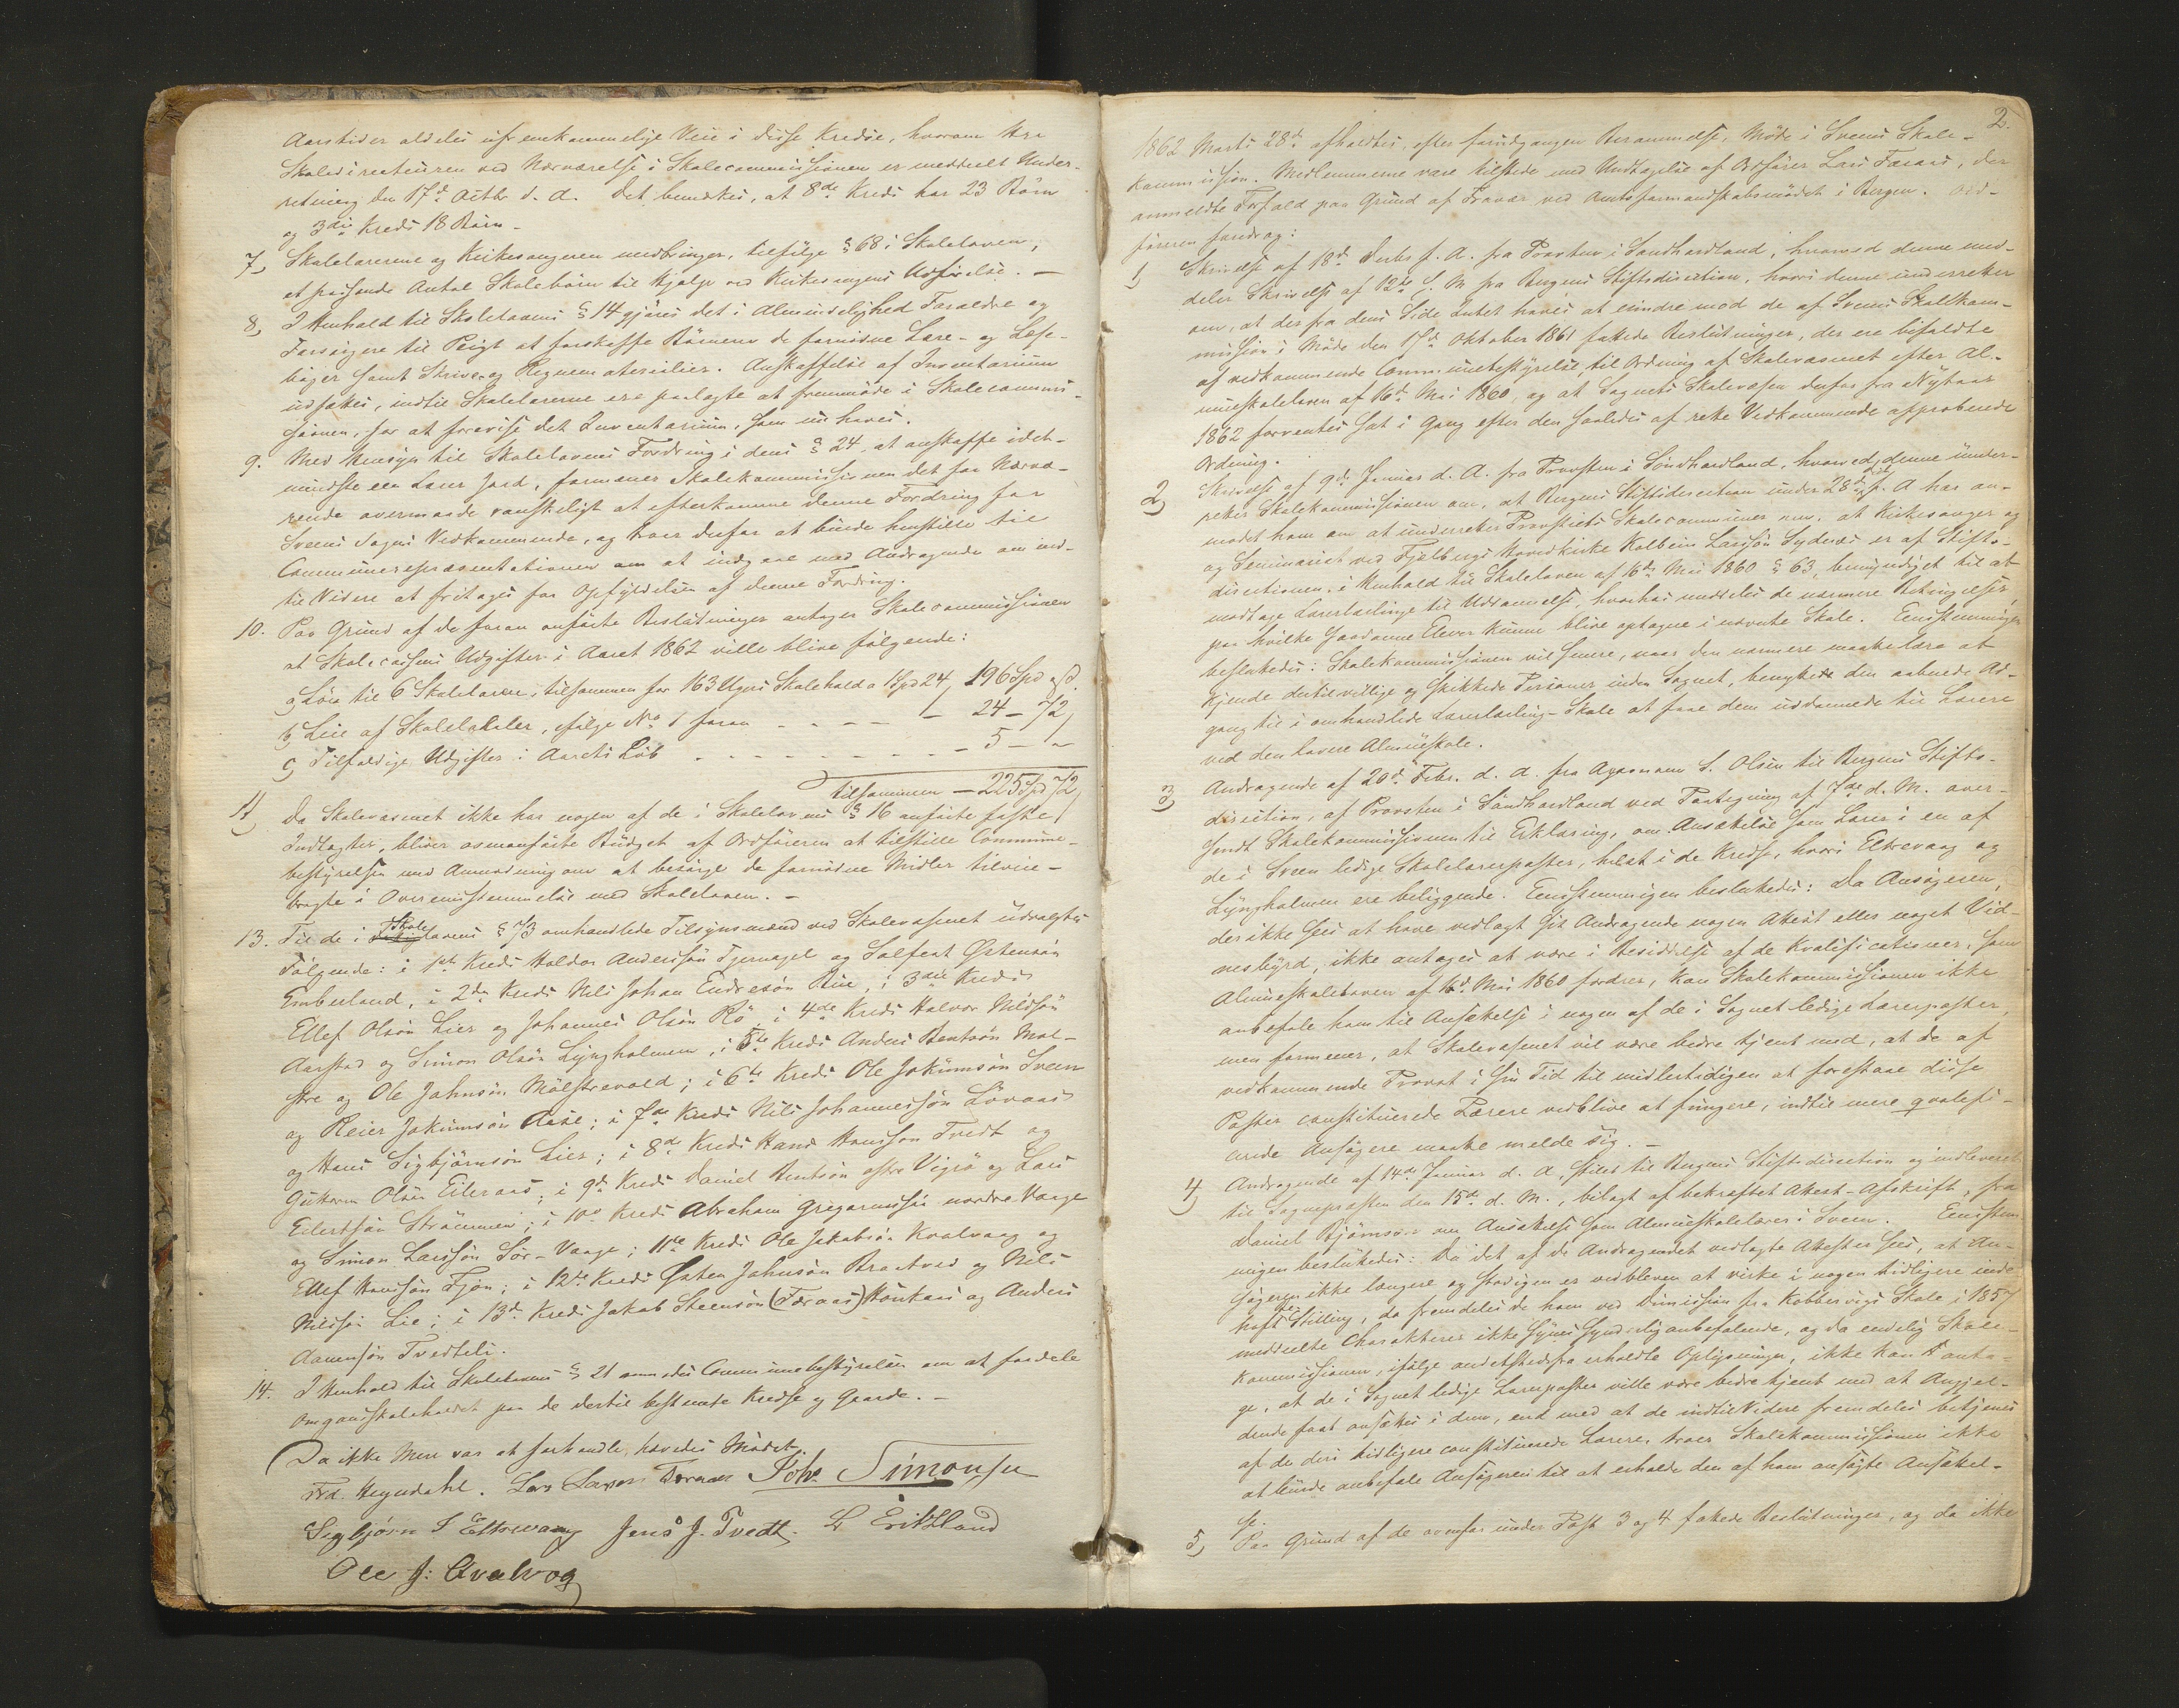 Aarstider aldeles ufremkommelige Veie i disse Kredse, hvorom Hr
Skoledirecteuren ved Nærværelse i Skolecommissionen er meddeelt Under-
retning den 17d Octbr d. A. Det bemærkes, at 8de Kreds har 23 Børn
og 3die Kreds 18 Børn.
7, Skolelærerne og Kirkesangeren medbringer, tilfølge § 68 i Skoleloven,
et passende Antal Skolebørn til Hjælp ved Kirkesangens Udførelse. —
8, I Henhold til Skolelovens § 14 gjøres det i Almindelighed Forældre og
Forsørgere til Pligt at forskaffe Børnene de fornødne Lære- og Læse-
bøger samt Skrive- og Regnematerialier. Anskaffelse af Inventarium
udsættes, indtil Skolelærerne ere paalagte at fremmøde i Skolecommis-
sionen, for at forevise det Inventarium, som nu haves.
9. Med Hensyn til Skolelovens Fordring i dens § 24, at anskaffe idet-
mindste een Lærer Jord, formener Skolekommissionen det for Nærvæ-
rende overmaade vanskeligt at efterkomme denne Fordring for
Sveens Sogns Vedkommende, og troer derfor at burde henstille til
Communerepræsentationen om at indgaae med Andragende om ind-
til Videre at fritages for Opfyldelsen af denne Fordring.
10. Paa Grund af de foran anførte Beslutninger antager Skolecommissionen
at Skolecassens Udgifter i Aaret 1862 ville blive følgende:
a, Løn til 6 Skolelærere, tilsammen for 163 Ugers Skolehold a 1 Spd 24, 196 Spd
b, Leie af Skolelokaler, ifølge No 1 foran - - - - — 24 — 72
c, Tilfældige Udgifter i Aarets Løb - - - - - - — 5 — "
Tilsammen — 225 Spd 72
11, Da Skolevæsenet ikke har nogen af de i Skolelovens § 16 anførte faste
Indtægter, bliver ovenanførte Budget af Ordføreren at tilstille Commune-
bestyrelsen med Anmodning om at besørge de fornødne Midler tilveie-
bragte i Overensstemmelse med Skoleloven. —
13. Til de i Skolelovens § 73 omhandlede Tilsynsmænd ved Skolevæsenet udvalgtes
Følgende: i 1ste Kreds Haldor Andersøn Tjernagel og Salfest Østensøn
Emberland, i 2den Kreds Nils Johan Endresøn Rue, i 3die Kreds
Ellef Olsøn Lier og Johannes Olsøn Rø i 4de Kreds Halvor Nilssøn
Aarstad og Simon Olsøn Lyngholmen, i 5te Kreds Anders Bentsøn Mæl-
stre og Ole Johnsøn Mølstrevold; i 6te Kreds Ole Jokumsøn Sveen
og Reier Jokumsøn Aase; i 7de Kreds Nils Johannessøn Løvaas
og Hans Sigbjørnsøn Lier; i 8de Kreds Hans Hanssøn Tvedt og
Guttorm Olsøn Eileraas; i 9de Kreds Daniel Bentsøn østre Vigrø og Lars
Eilertsøn Strømmen; i 10de Kreds Abraham Gregoriussøn nordre Vaage
og Simon Larssøn Sør-Vaage; 11te Kreds Ole Jakobsøn Kvalvaag og
Ellef Hanssøn Fjon; i 12te Kreds Østen Johnsøn Braatveid og Nils
Nilssøn Lie; i 13de Kreds Jakob Steensøn (Færaas) Haukaas og Anders
Aamensøn Tvedteli.
14. I Henhold til Skolelovens § 21 anmodes Communebestyrelsen om at fordele
Omgangsskoleholdet paa de dertil bestemte Kredse og Gaarde. —
Da ikke Mere var at forhandle, hævedes Mødet.
Frd. Heyndahl. Lars Larsen Færaas Johs Simonsen
Sigbjørn S Eltrevaag Jens J. Tvedt. L Eriksland
Ole J: Qvalvog
2.
1862 Marts 28d afholdtes, efter forudgangen Berammelse, Møde i Sveens Skole-
kommission. Medlemmerne vare tilstede med Undtagelse af Ordfører Lars Færaas, der
anmeldte Forfald paa Grund af Fravær ved Amtsformandskabsmødet i Bergen. Ord-
føreren foredrog:
1, Skrivelse af 18d Decbr f. A. fra Provsten i Søndhordland, hvorved denne med-
deler Skrivelse af 12te s. M. fra Bergens Stiftsdirection, hvori denne underretter
om, at der fra dens Side Intet haves at erindre mod de af Sveens Skolekom-
mission i Møde den 17de Oktober 1861 fattede Beslutninger, der ere bifaldte
af vedkommende Communebestyrelse, til Ordning af Skolevæsenet efter Al-
mueskoleloven af 16de Mai 1860, og at Sognets Skolevæsen derfor fra Nytaar
1862 forventes sat i Gang efter den saaledes af rette Vedkommende approberede
Ordning.
2, Skrivelse af 9d Januar d. A. fra Provsten i Søndhordland, hvorved denne under-
retter Skolekommissionen om, at Bergens Stiftsdirection under 28de f. A har an-
modet ham om at underrette Provstiets Skolecommissioner om, at Kirkesanger og
og Seminarist ved Fjelbergs Hovedkirke Kolbein Larssøn Sydnæs er af Stifts-
directionen, i Henhold til Skoleloven af 16de Mai 1860 § 63, bemyndiget til at
modtage Lærerlærlinge til Uddannelse, hvorhos meddeles de nærmere Betingelser,
paa hvilke saadanne Elever kunne blive optagne i nævnte Skole. Eenstemmigen
besluttedes: Skolekommissionen vil senere, naar den nærmere maatte lære at
kjende dertil villige og skikkede Personer inden Sognet, benytte den aabnede Ad-
gang til i omhandlede Lærerlærling-Skole at faae dem uddannede til Lærere
ved den lavere Almueskole.
3, Andragende af 20d Febr. d. A. fra Agronom S. Olsen til Bergens Stifts-
direction, af Provsten i Søndhordland ved Paategning af 7de d. M. over-
sendt Skolekommissionen til Erklæring, om Ansættelse som Lærer i en af
de i Sveen ledige Skolelærerposter, helst i de Kredse, hvori Eltrevaag og
Lyngholmen ere beliggende. Eenstemmigen besluttedes: Da Ansøgeren,
der ikke sees at have vedlagt sit Andragende nogen Attest eller noget Vid-
nesbyrd, ikke antages at være i Besiddelse af de Kvalificationer, som
Almueskoleloven af 16d Mai 1860 fordrer, kan Skolekommissionen ikke
anbefale ham til Ansættelse i nogen af de i Sognet ledige Lærerposter,
men formener, at Skolevæsenet vil være bedre tjent med, at de af
vedkommende Provst i sin Tid til midlertidigen at forestaae disse
Poster constituerede Lærere vedblive at fungere, indtil mere qvalifi-
cerede Ansøgere maatte melde sig. —
4, Andragende af 14de Januar d. A., stilet til Bergens Stiftsdirection og indleveret
til Sognepresten den 15de d. M., bilagt af bekræftet Attest-Afskrift, fra
Daniel Bjørnsøn om Ansættelse som Almueskolelærer i Sveen. Eenstem-
migen besluttedes: Da det af de Andragendet vedlagte Attester sees, at An-
søgeren ikke længere og stadigen er vedbleven at virke i nogen tidligere inde-
havt Stilling, da fremdeles de ham ved Dimission fra Kobbervigs Skole i 1857
meddeelte Charakterer ikke synes synderlig anbefalende, og da endelig Skole-
kommissionen, ifølge andetstedsfra erholdte Oplysninger, ikke kan anta-
ge, at de i Sognet ledige Lærerposter ville være bedre tjent med at Angjæl-
dende faar ansættes i dem, end med at de indtil Videre fremdeles betjenes
af de deri tidligere constituerede Lærere, troer Skolekommissionen ikke
at burde anbefale Ansøgeren til at erholde den af ham ansøgte Ansættel-
se.
5, Paa Grund af de ovenfor under Post 3 og 4 fattede Beslutninger, og da ikke